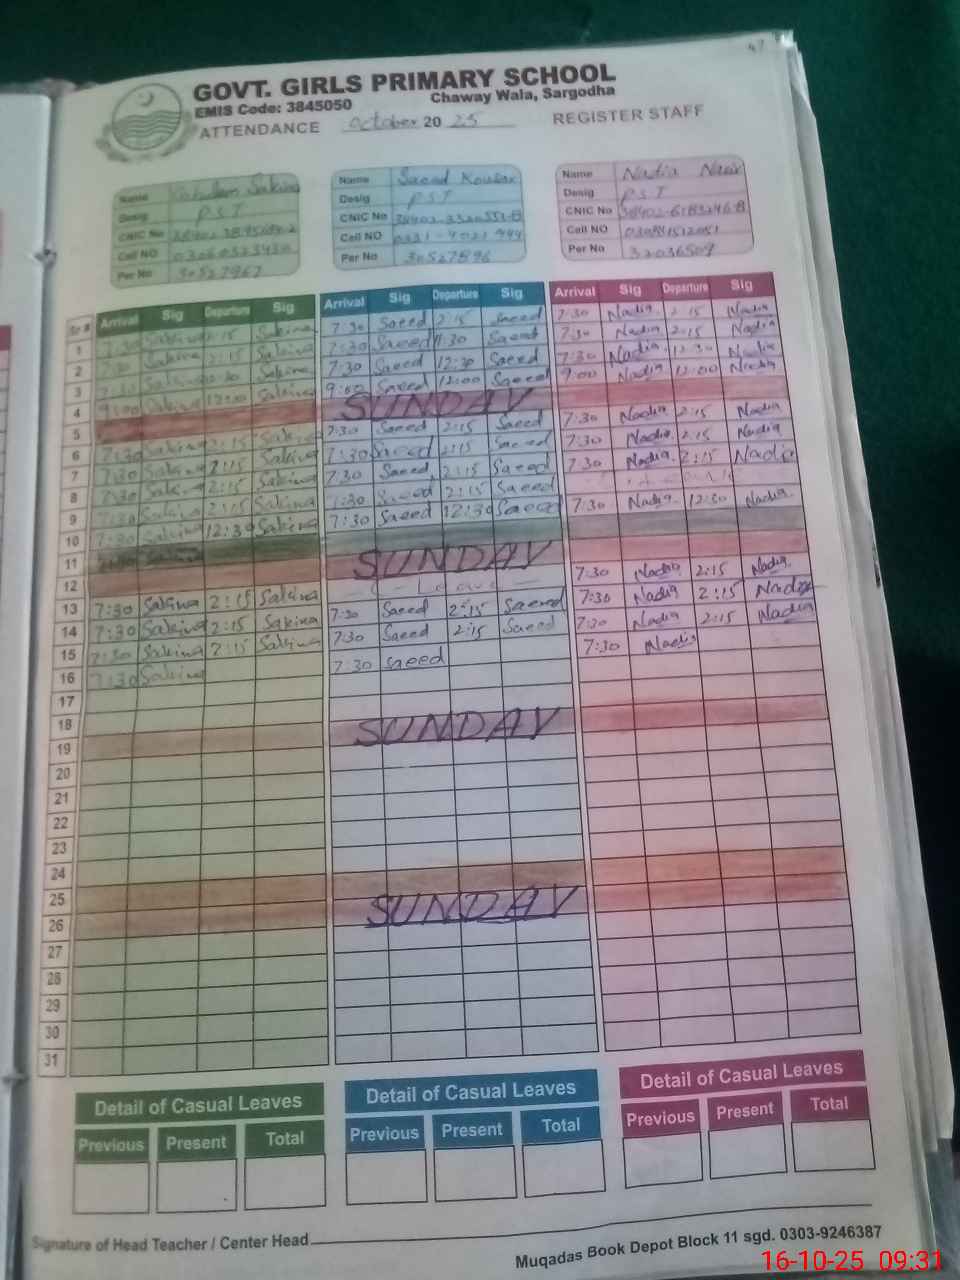 47
GOVT. GIRLS PRIMARY SCHOOL
EMIS Code: 3845050 Chaway Wala, Sargodha
ATTENDANCE October 20 25 REGISTER STAFF
Name Sakina Name Saeed Kousar Name Nadia
Desig P.S.T Desig P.S.T Desig P.S.T
CNIC No CNIC No CNIC No
Cell NO Cell NO Cell NO
Per No 30527967 Per No 30527896 Per No 32036509
Sr # Arrival Sig Departure Sig Arrival Sig Departure Sig Arrival Sig Departure Sig
1 7:30 Sakina 2:15 Sakina 7:30 Saeed 2:15 Saeed 7:30 Nadia 2:15 Nadia
2 7:30 Sakina 2:15 Sakina 7:30 Saeed 11:30 Saeed 7:30 Nadia 2:15 Nadia
3 7:30 Sakina 12:30 Sakina 7:30 Saeed 12:30 Saeed 7:30 Nadia 12:30 Nadia
4 9:00 Sakina 12:00 Sakina 9:00 Saeed 12:00 Saeed 9:00 Nadia 12:00 Nadia
5 SUNDAY
6 7:30 Sakina 2:15 Sakina 7:30 Saeed 2:15 Saeed 7:30 Nadia 2:15 Nadia
7 7:30 Sakina 2:15 Sakina 7:30 Saeed 2:15 Saeed 7:30 Nadia 2:15 Nadia
8 7:30 Sakina 2:15 Sakina 7:30 Saeed 2:15 Saeed 7:30 Nadia 2:15 Nadia
9 7:30 Sakina 2:15 Sakina 7:30 Saeed 2:15 Saeed
10 7:30 Sakina 12:30 Sakina 7:30 Saeed 12:30 Saeed 7:30 Nadia 12:30 Nadia
11
12 SUNDAY
13 7:30 Sakina 2:15 Sakina Leave 7:30 Nadia 2:15 Nadia
14 7:30 Sakina 2:15 Sakina 7:30 Saeed 2:15 Saeed 7:30 Nadia 2:15 Nadia
15 7:30 Sakina 2:15 Sakina 7:30 Saeed 2:15 Saeed 7:30 Nadia 2:15 Nadia
16 7:30 Sakina 7:30 Saeed 7:30 Nadia
17
18
19 SUNDAY
20
21
22
23
24
25
26 SUNDAY
27
28
29
30
31
Detail of Casual Leaves Detail of Casual Leaves Detail of Casual Leaves
Previous Present Total Previous Present Total Previous Present Total
Signature of Head Teacher / Center Head
Muqadas Book Depot Block 11 sgd. 0303-9246387
16-10-25 09:31